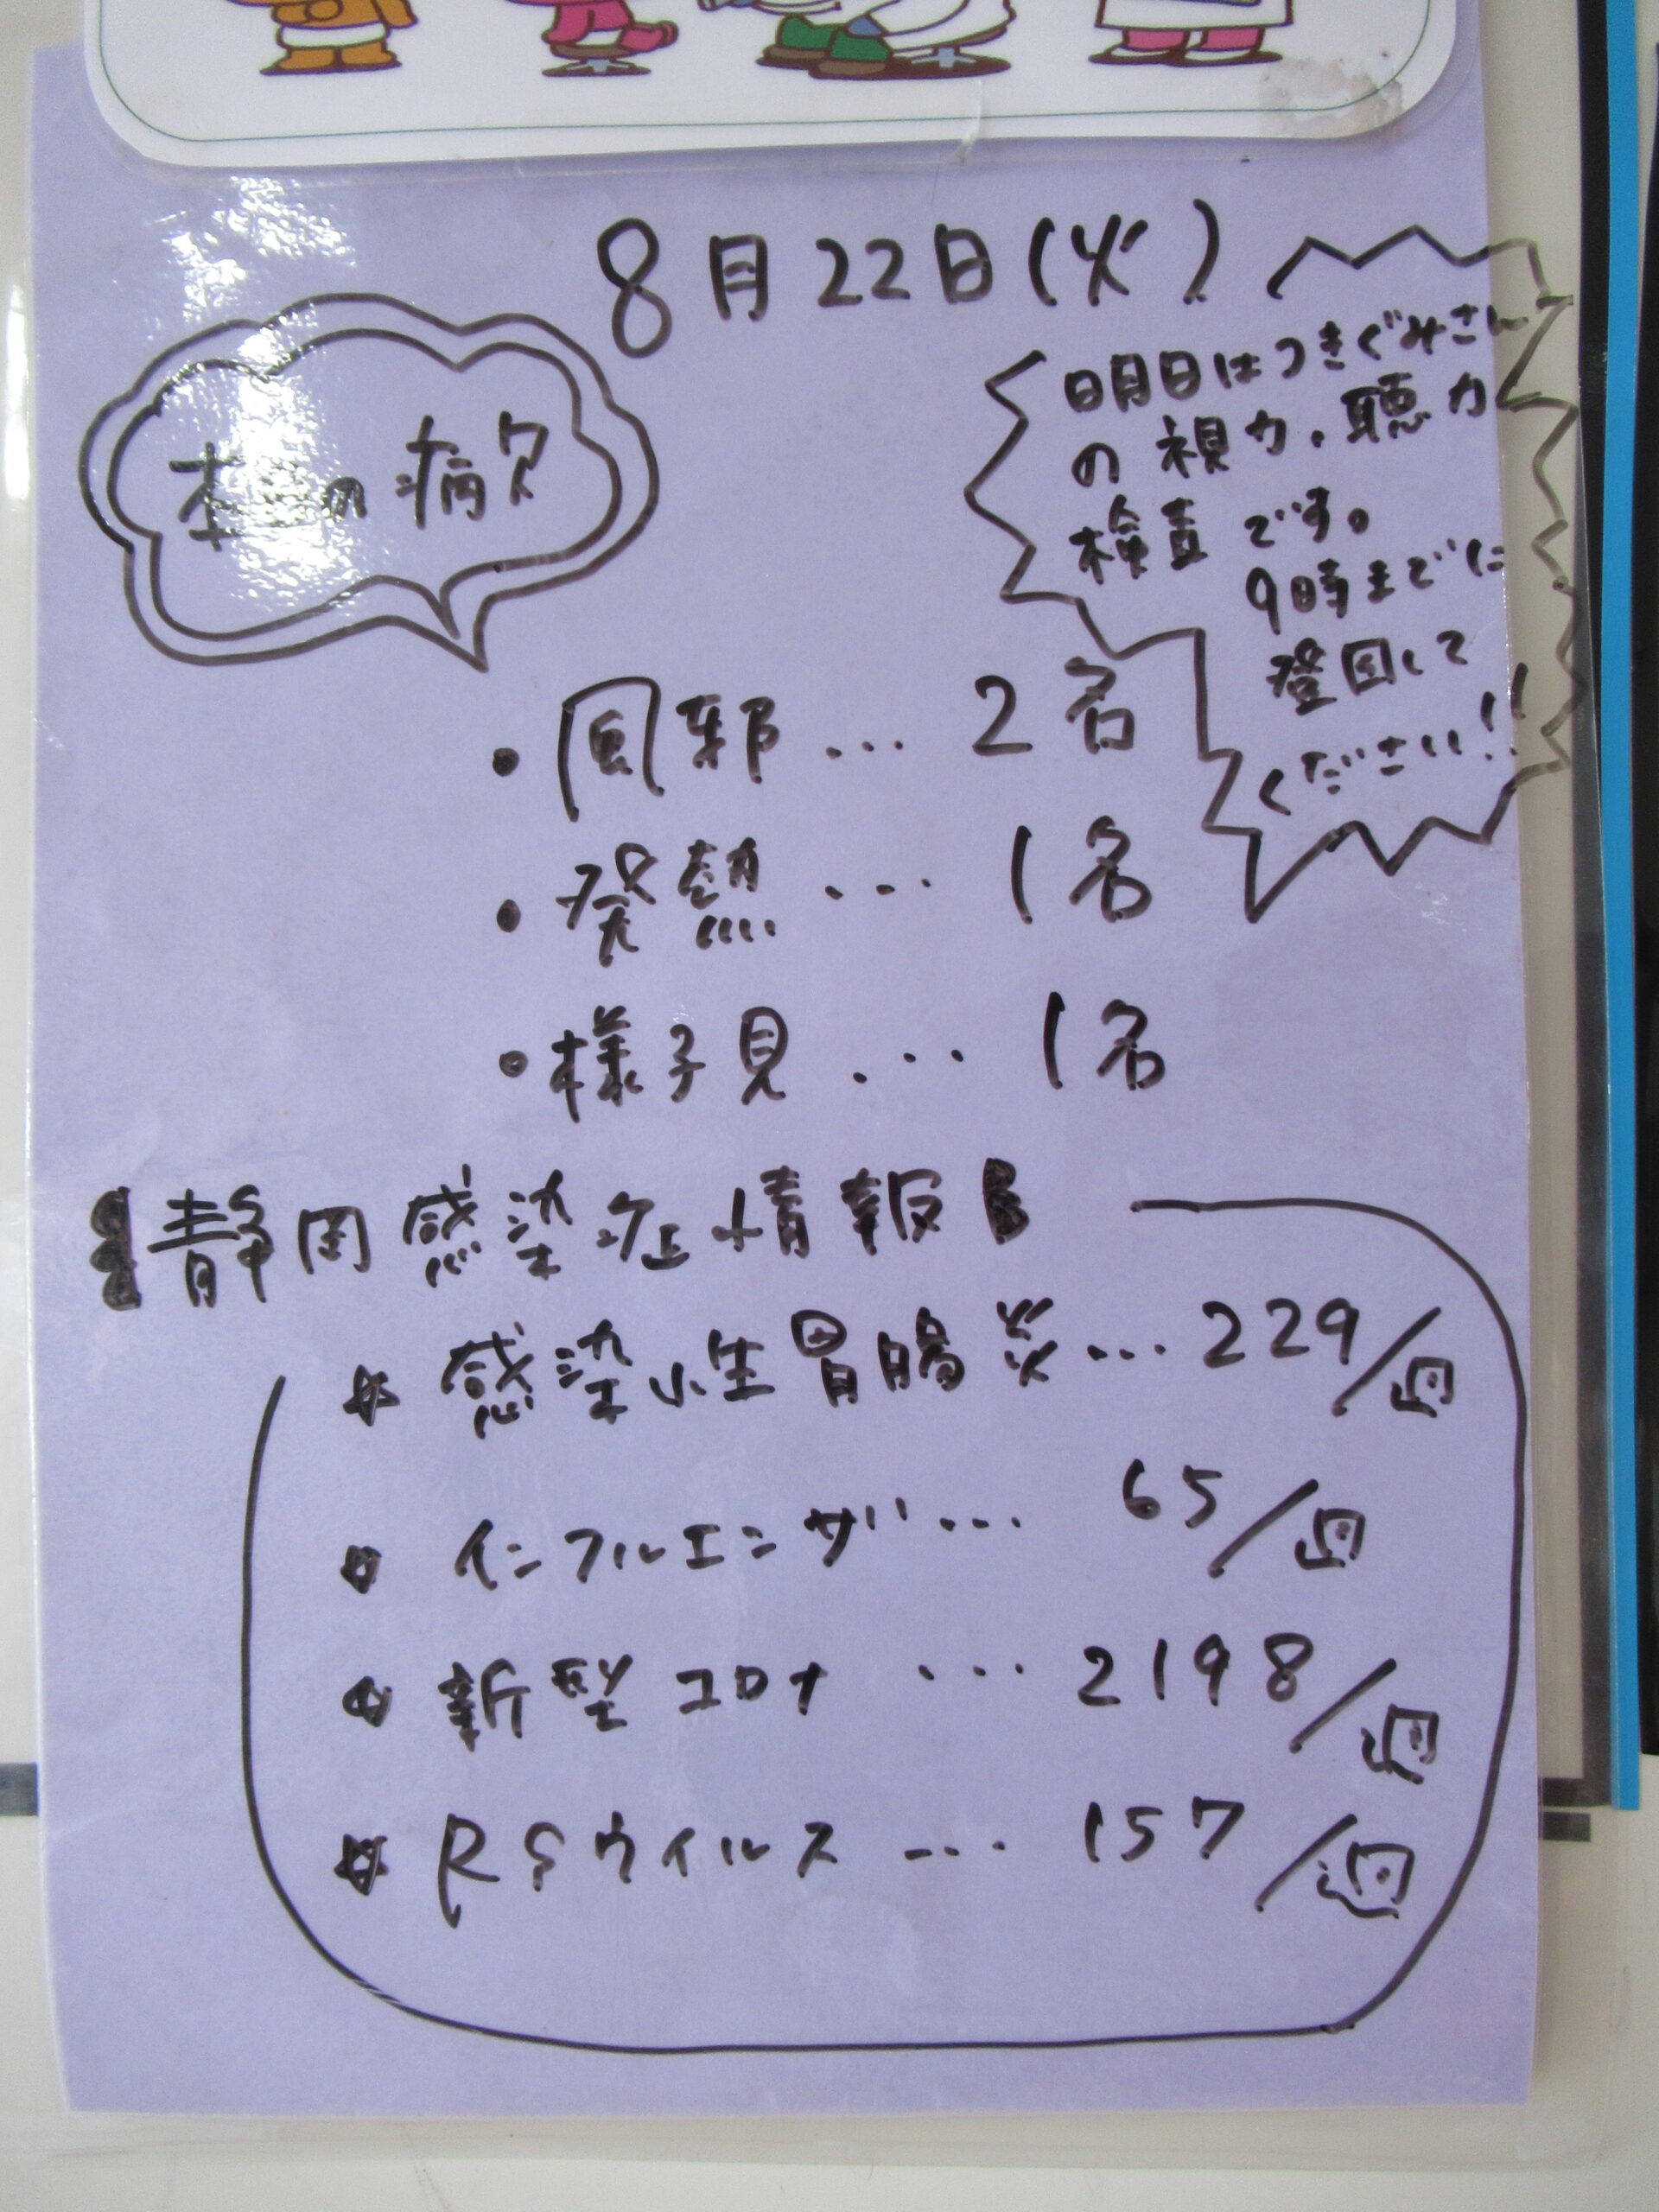 8月22日(火)
明日はつきぐみさん
の視力、聴力
検査です。
9時までに
登園して
ください!!
本日の病欠
・風邪… 2名
・発熱… 1名
・様子見… 1名
静岡感染症情報
☆ 感染性胃腸炎… 229/週
☆ インフルエンザ… 65/週
☆ 新型コロナ … 2198/週
☆ RSウイルス … 157/週